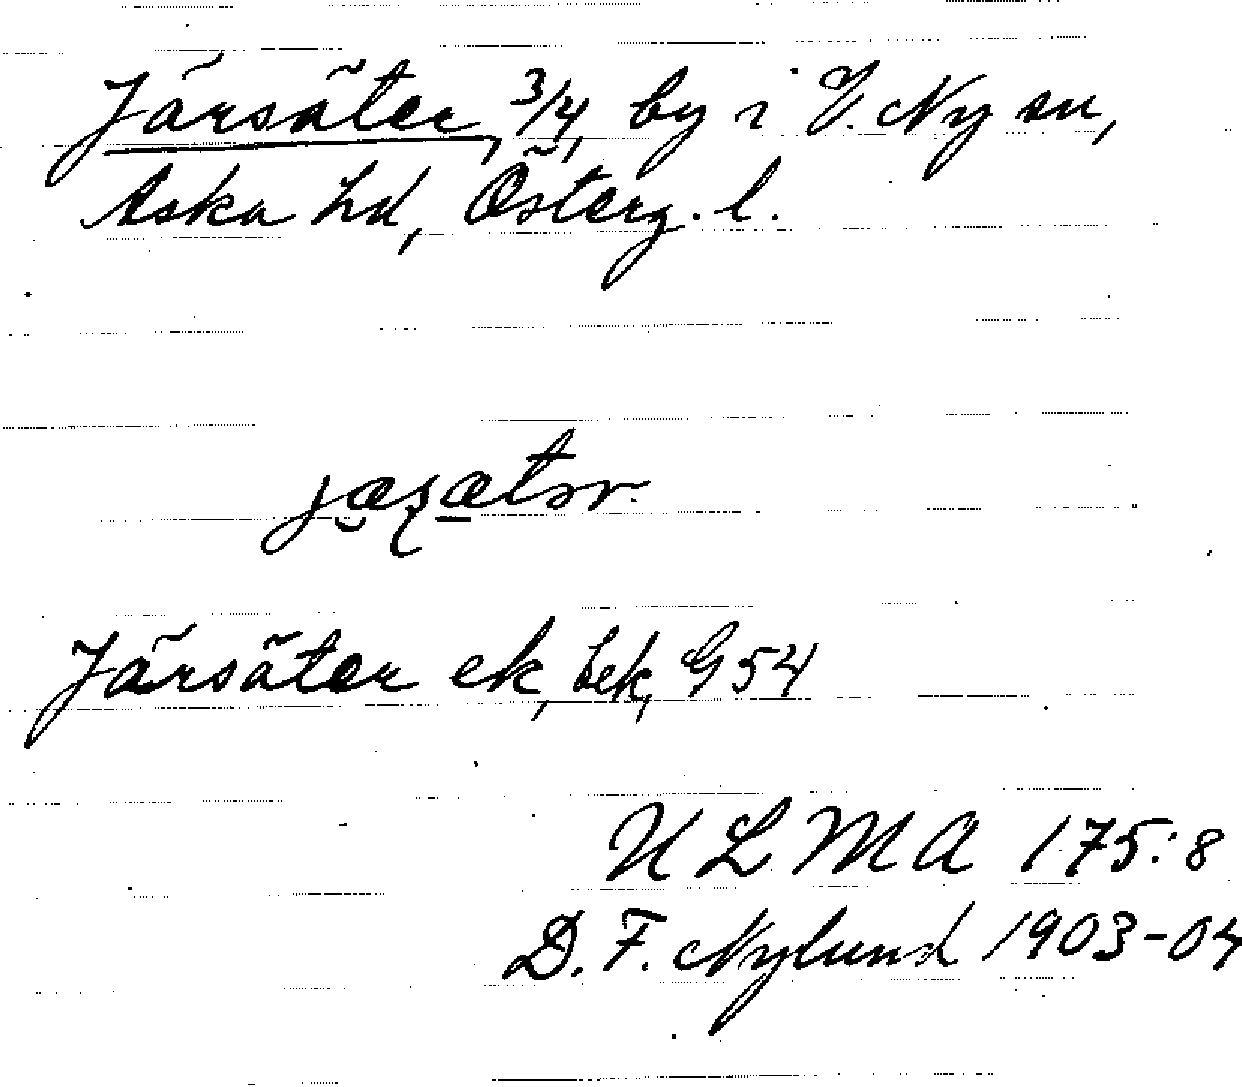 Järsäter, 3/4, by i V. Ny sn,
Aska hd, Österg. l.
Järsäter ek, bek, G 54
ULMA 175:8
D. F. Nylund 1903-04